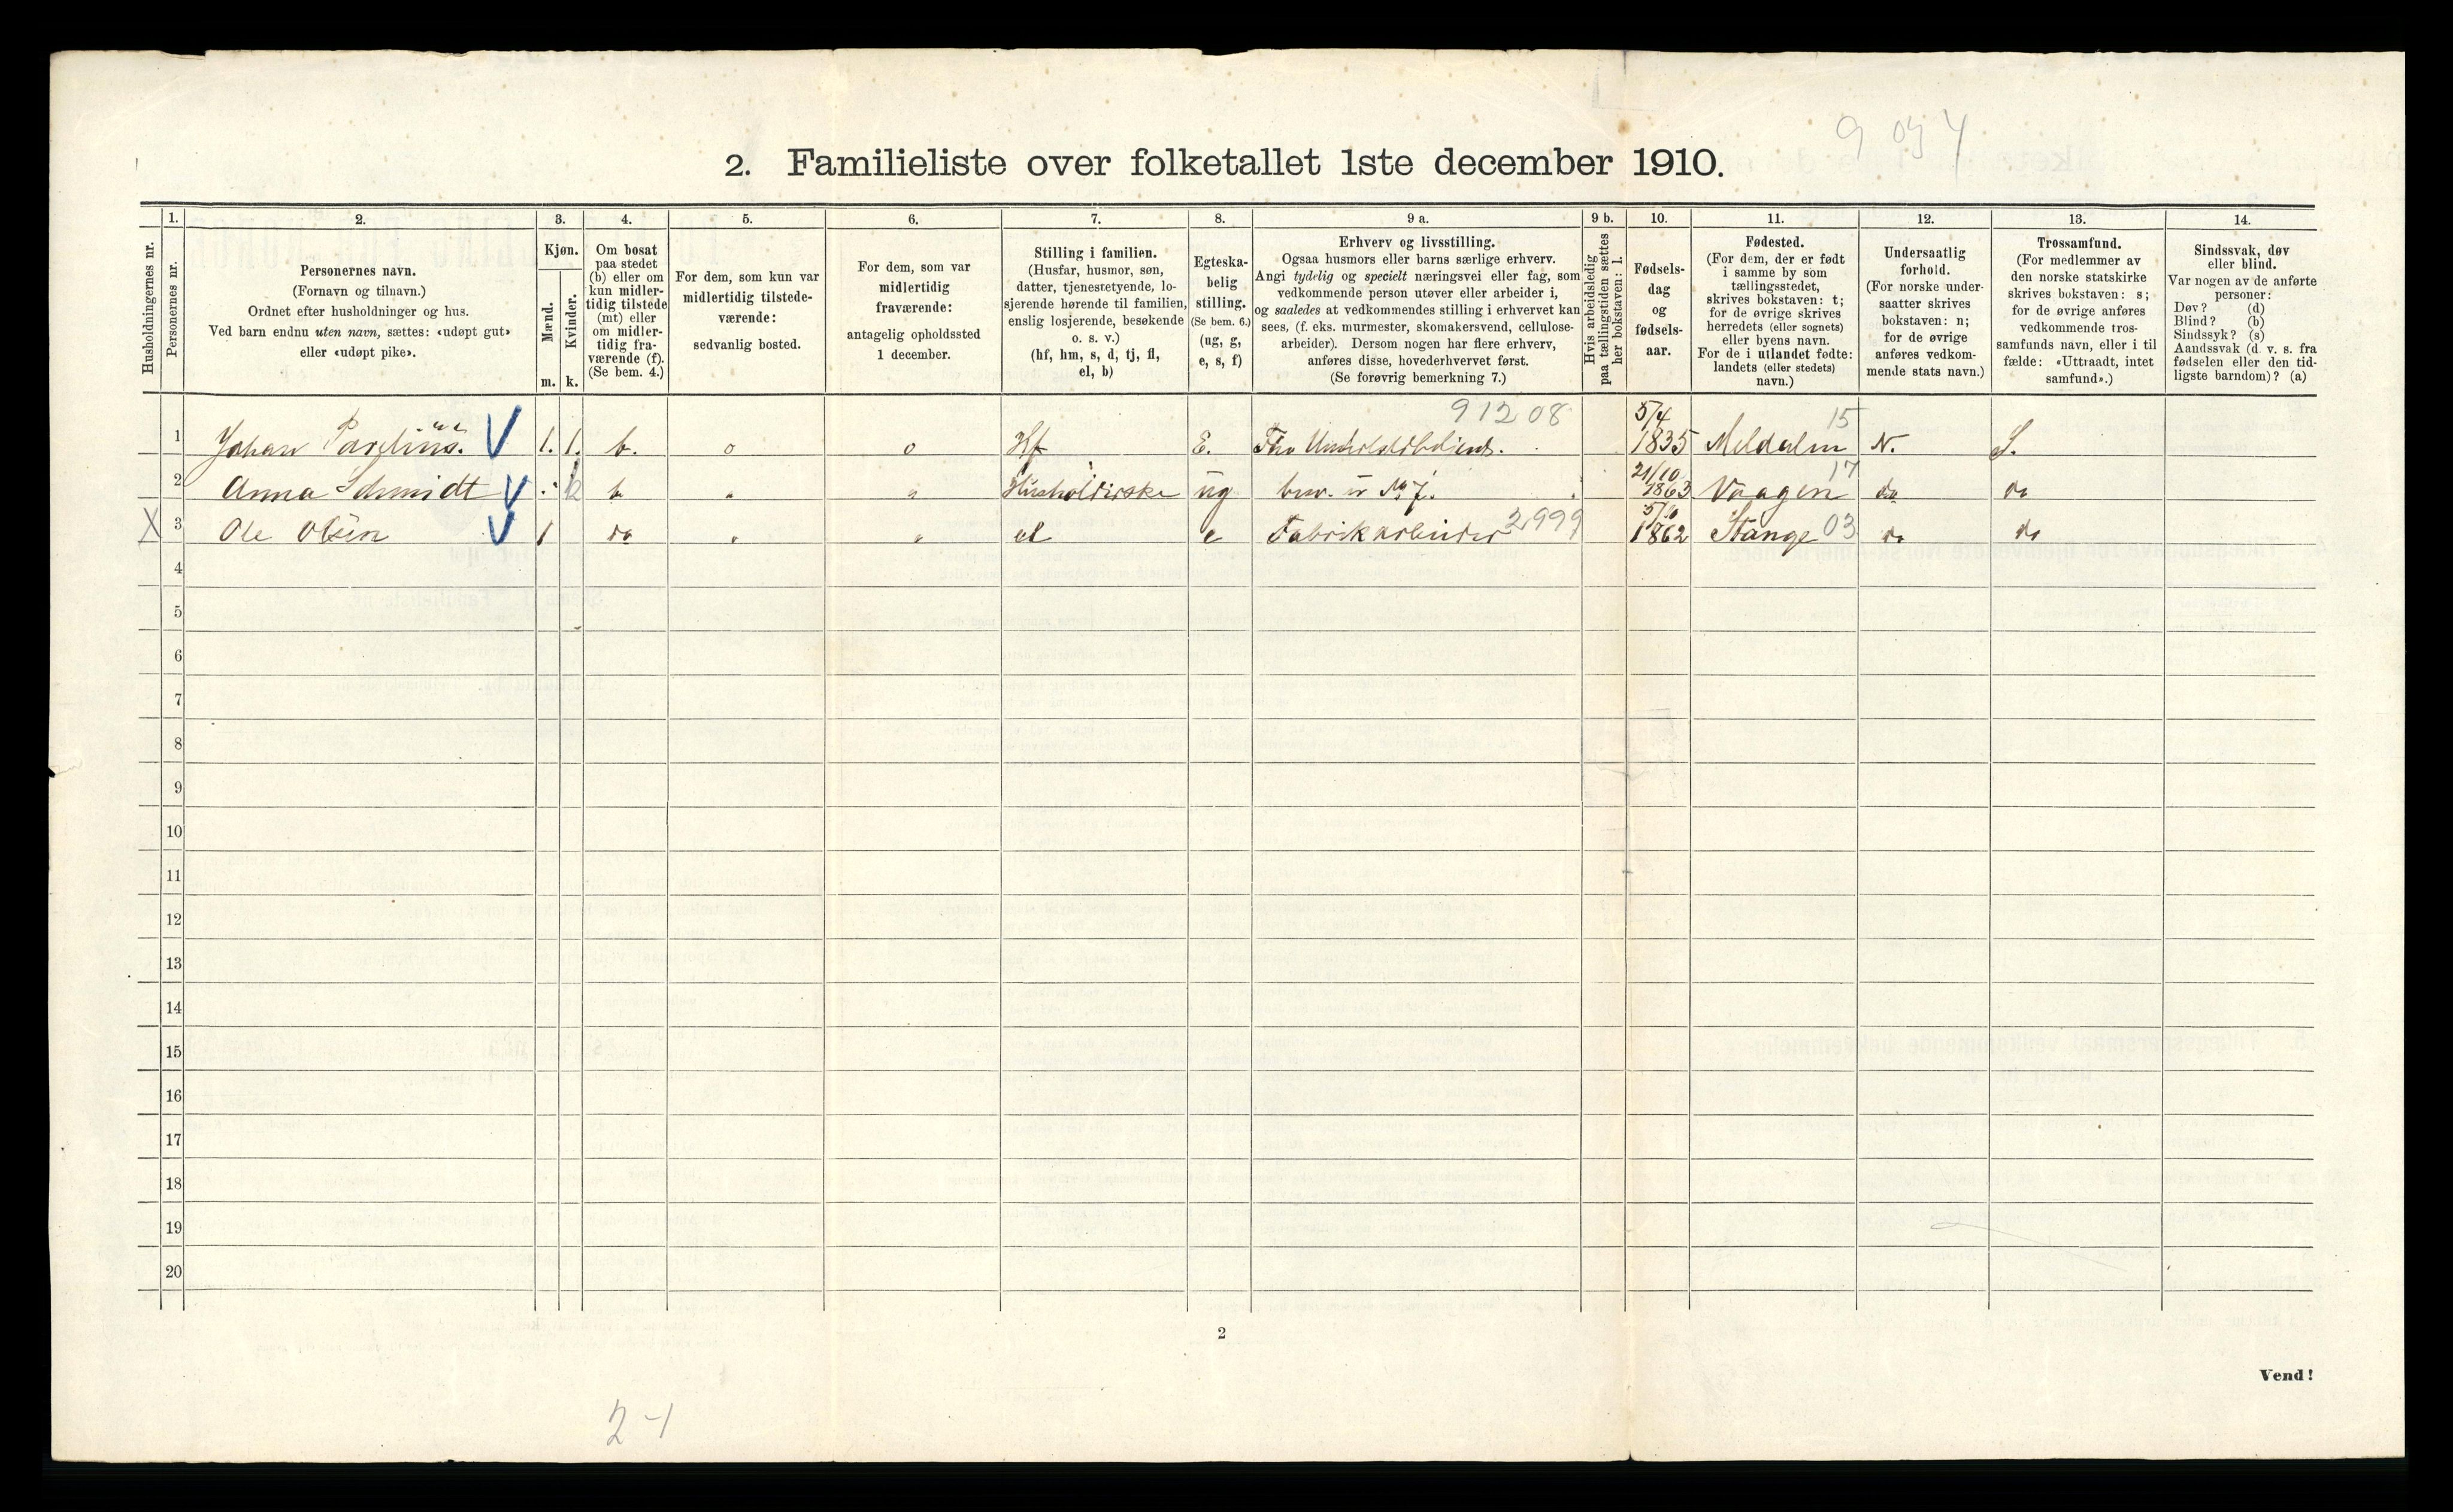 9 034
2. Familieliste over folketallet 1ste december 1910.
Husholdningernes nr.
1.
Personernes nr.
2.
Personernes navn.
(Fornavn og tilnavn.)
Ordnet efter husholdninger og hus.
Ved barn endnu uten navn, sættes: «udøpt gut»
eller «udøpt pike».
3.
Kjøn.
Mænd.
Kvinder.
m. k.
4.
Om bosat
paa stedet
(b) eller om
kun midler-
tidig tilstede
(mt) eller
om midler-
tidig fra-
værende (f).
(Se bem. 4.)
5.
For dem, som kun var
midlertidig tilstede-
værende:
sedvanlig bosted.
6.
For dem, som var
midlertidig
fraværende:
antagelig opholdssted
1 december.
7.
Stilling i familien.
(Husfar, husmor, søn,
datter, tjenestetyende, lo-
sjerende hørende til familien,
enslig losjerende, besøkende
o. s. v.)
(hf, hm, s, d, tj, fl,
el, b)
8.
Egteska-
belig
stilling.
(Se bem. 6.)
(ug, g,
e, s, f)
9 a.
Erhverv og livsstilling.
Ogsaa husmors eller barns særlige erhverv.
Angi tydelig og specielt næringsvei eller fag, som
vedkommende person utøver eller arbeider i,
og saaledes at vedkommendes stilling i erhvervet kan
sees, (f. eks. murmester, skomakersvend, cellulose-
arbeider). Dersom nogen har flere erhverv,
anføres disse, hovederhvervet først.
(Se forøvrig bemerkning 7.)
9 b.
Hvis arbeidsledig
paa tællingstiden sættes
her bokstaven: l.
10.
Fødsels-
dag
og
fødsels-
aar.
11.
Fødested.
(For dem, der er født
i samme by som
tællingsstedet,
skrives bokstaven: t;
for de øvrige skrives
herredets (eller sognets)
eller byens navn.
For de i utlandet fødte:
landets (eller stedets)
navn.)
12.
Undersaatlig
forhold.
(For norske under-
saatter skrives
bokstaven: n;
for de øvrige
anføres vedkom-
mende stats navn.)
13.
Trossamfund.
(For medlemmer av
den norske statskirke
skrives bokstaven: s;
for de øvrige anføres
vedkommende tros-
samfunds navn, eller i til
fælde: «Uttraadt, intet
samfund».)
14.
Sindssvak, døv
eller blind.
Var nogen av de anførte
personer:
Døv? (d)
Blind? (b)
Sindssyk? (s)
Aandssvak (d. v. s. fra
fødselen eller den tid-
ligste barndom)? (a)
1 Johan V 1. 1. b. o o Hf E. 91208 5/4 1835 Meldalen 15 N. S.
2 Anna Schmidt V b " " Husholderske ug 21/10 1863 Vaagen 17 do do
X 3 Ole Olsen V 1 do " " el e Fabrikarbeider 2999 1862 Stange 03 do do
4
5
6
7
8
9
10
11
12
13
14
15
16
17
18
19
20
2
Vend!
2-1